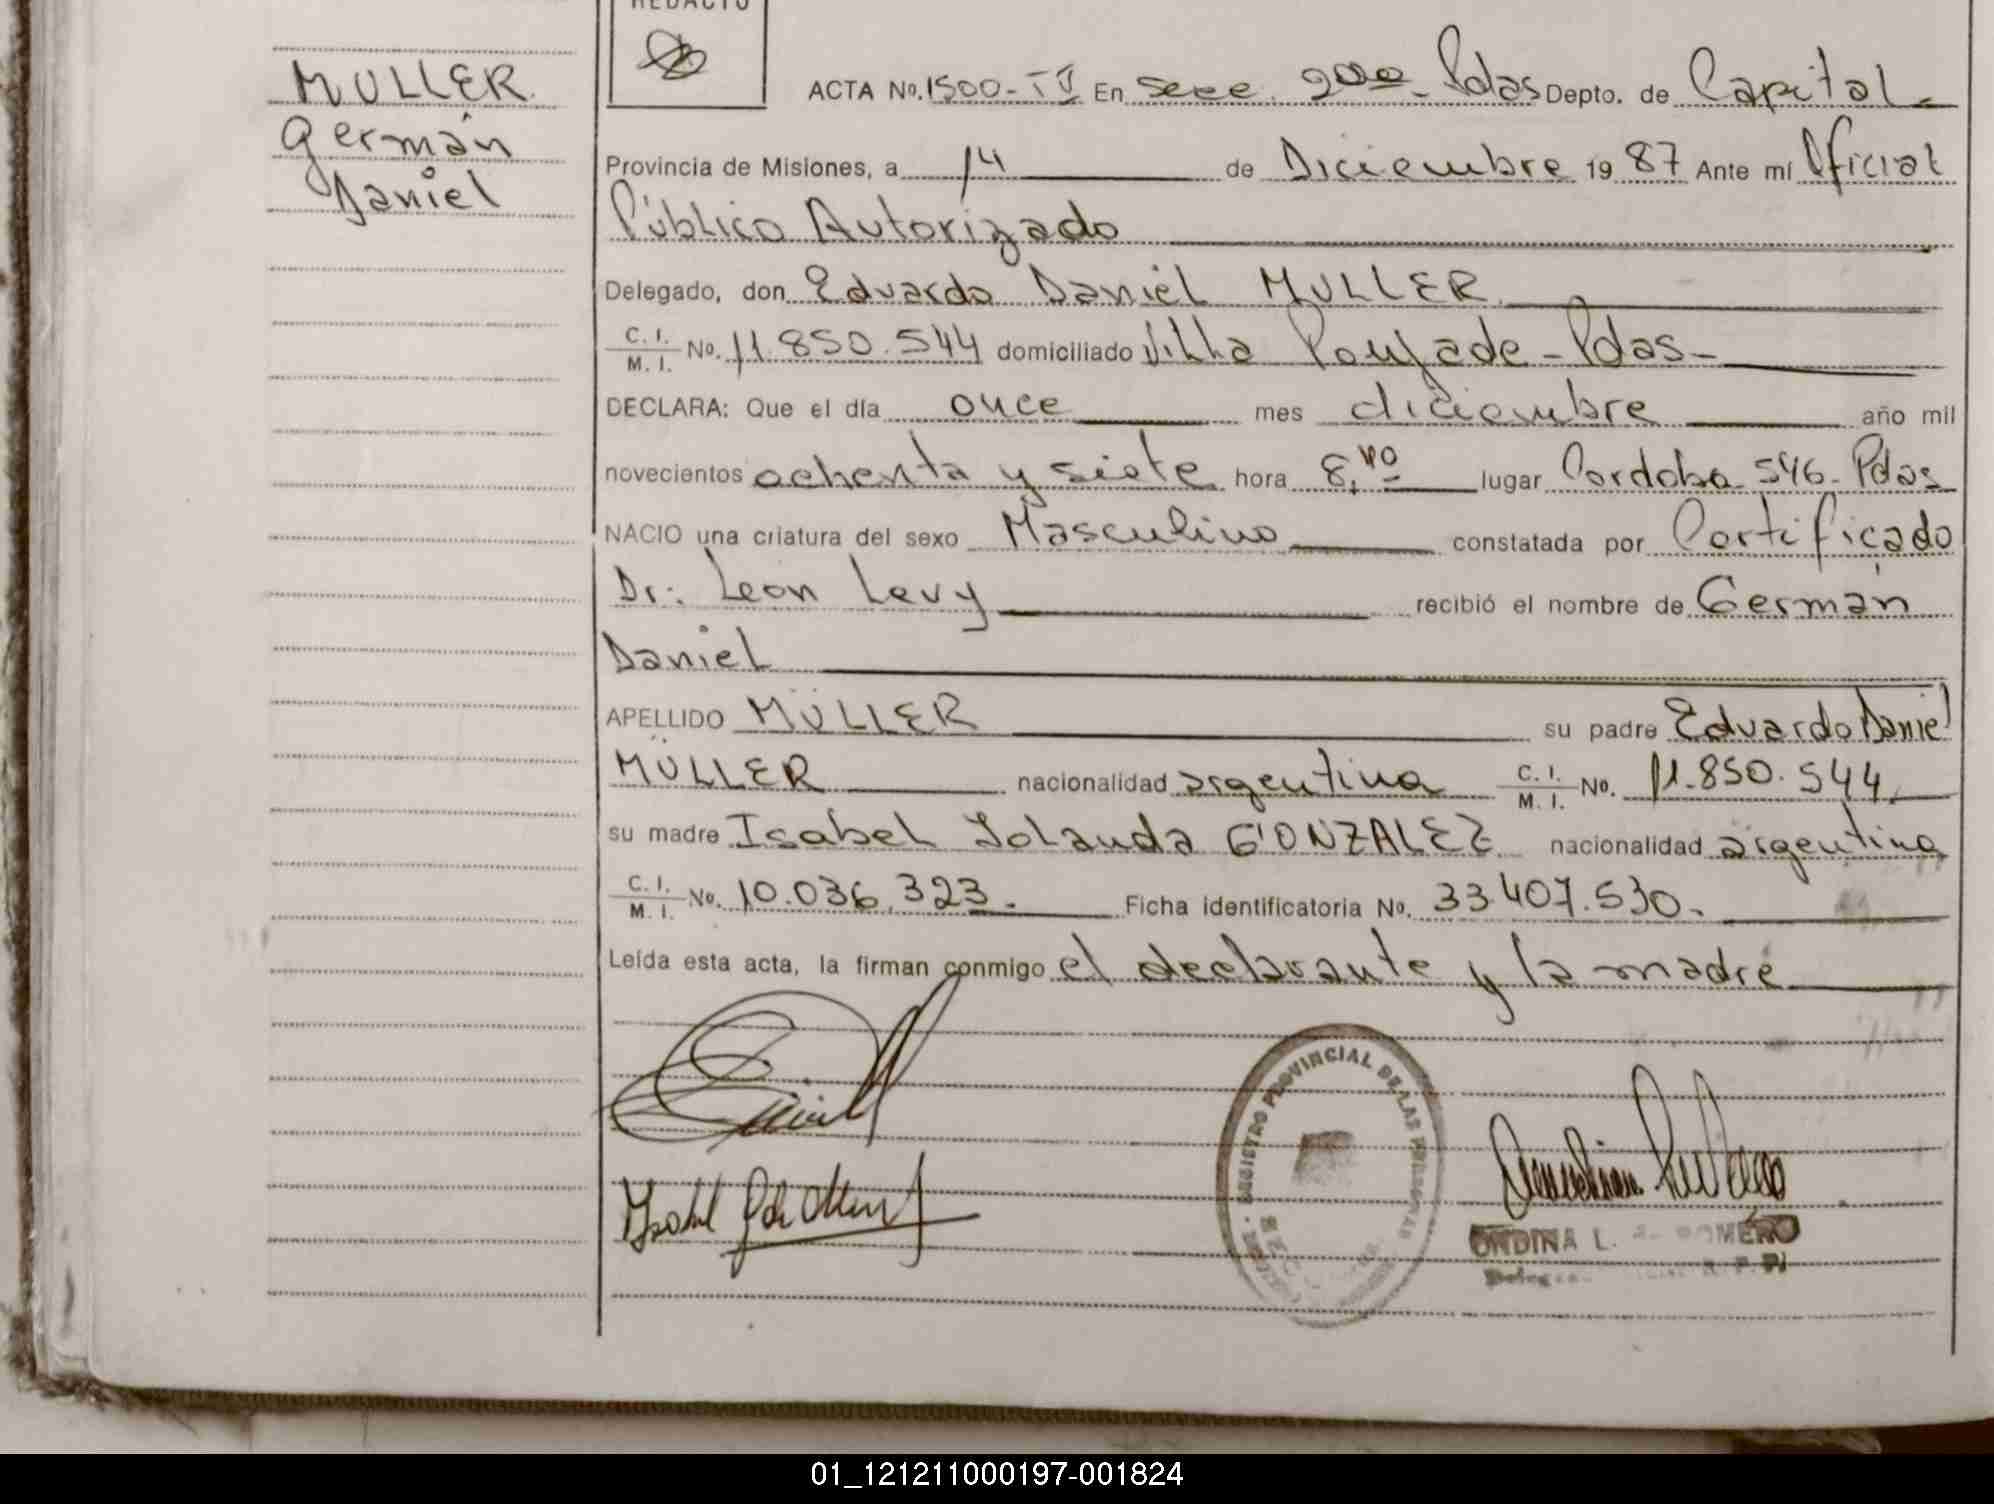 MULLER
Germán
Daniel
REDACTO
ACTA No. 1500-IV En Secc. 2da - Pdas Depto. de Capital
Provincia de Misiones, a 14 de Diciembre 1987 Ante mí Oficial
Público Autorizado
Delegado, don Eduardo Daniel MULLER
C. I. / M. I. No. 11.850.544 domiciliado Villa Poujade - Pdas -
DECLARA: Que el día once mes diciembre año mil
novecientos ochenta y siete hora 8,40 lugar Cordoba 546 - Pdas
NACIO una criatura del sexo Masculino constatada por Certificado
Dr: Leon Levy recibió el nombre de Germán
Daniel
APELLIDO MÜLLER su padre Eduardo Daniel
MÜLLER nacionalidad argentina C. I. / M. I. No. 11.850.544
su madre Isabel Yolanda GONZALEZ nacionalidad argentina
C. I. / M. I. No. 10.036.323. Ficha identificatoria No. 33.407.530.
Leída esta acta, la firman conmigo el declarante y la madre
REGISTRO PROVINCIAL DE LAS PERSONAS
ONDINA L. ROMERO
01_121211000197-001824